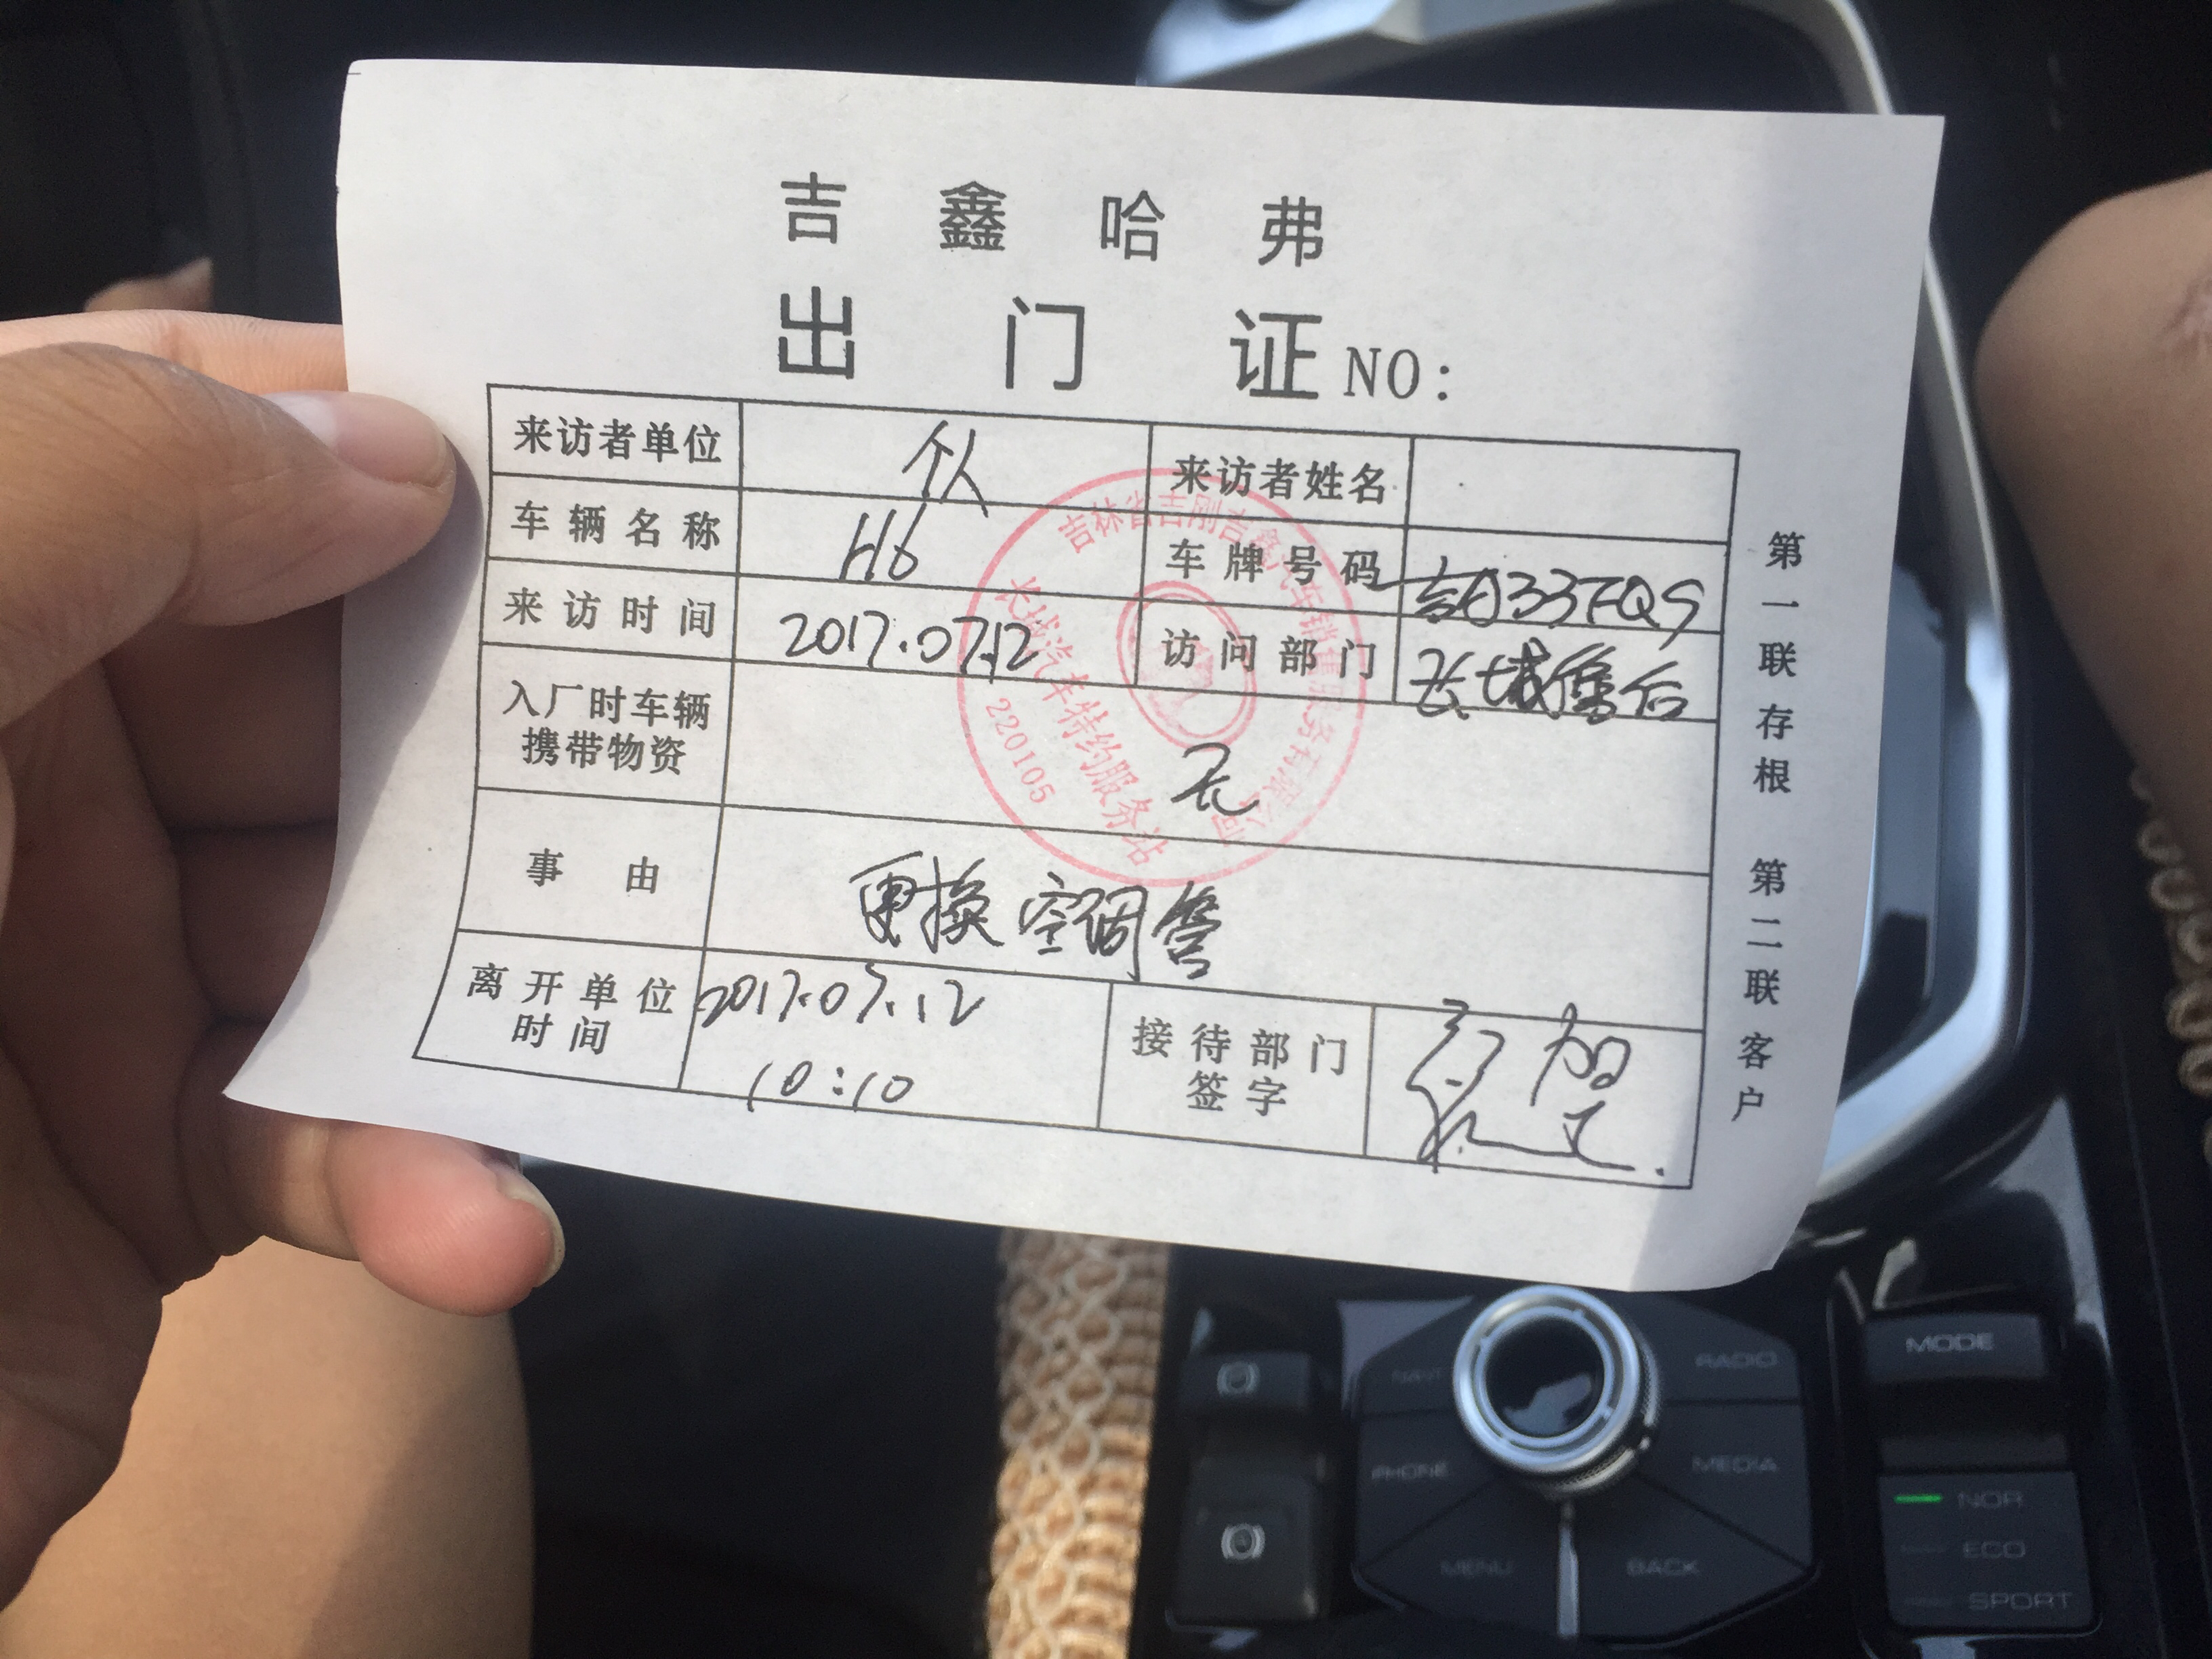 吉鑫哈弗
出门证 NO:
来访者单位 个人 来访者姓名
车辆名称 H6 车牌号码
来访时间 2017.07.12 访问部门 长城售后
入厂时车辆携带物资 无
事由 更换空调管
离开单位时间 2017.07.12 10:10 接待部门签字
第一联存根 第二联客户
吉林省吉刚吉鑫汽车销售服务有限公司
长城汽车特约服务站
220105
NAVI
RADIO
PHONE
MEDIA
MENU
BACK
MODE
NOR
ECO
SPORT